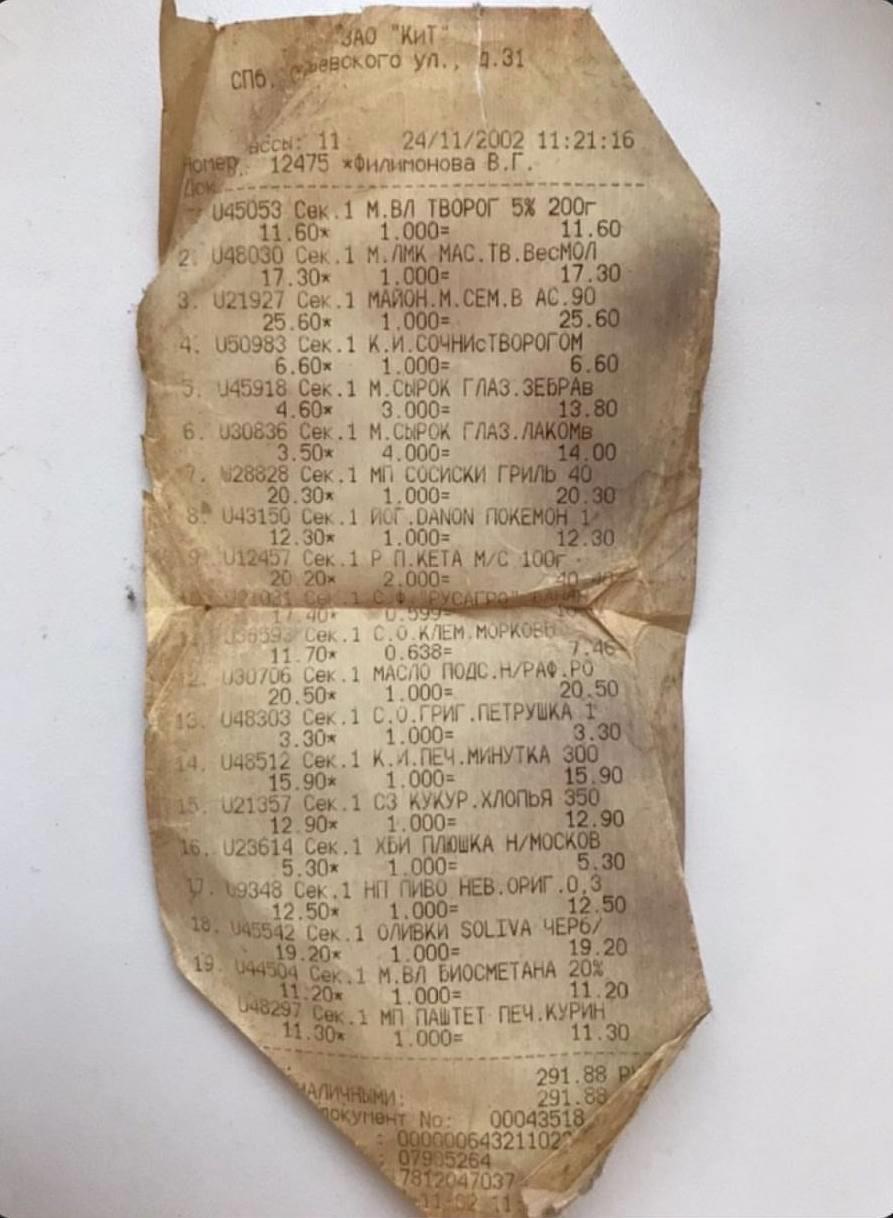 ЗАО "КиТ"
СПб, евского ул., д.31
ассы: 11 24/11/2002 11:21:16
Номер 12475 *Филимонова В.Г.
Док.
U45053 Сек.1 М.ВЛ ТВОРОГ 5% 200г
11.60* 1.000= 11.60
2. U48030 Сек.1 М.ЛМК МАС.ТВ.ВесМОЛ
17.30* 1.000= 17.30
3. U21927 Сек.1 МАЙОН.М.СЕМ.В АС.90
25.60* 1.000= 25.60
4. U50983 Сек.1 К.И.СОЧНИсТВОРОГОМ
6.60* 1.000= 6.60
5. U45918 Сек.1 М.СЫРОК ГЛАЗ.ЗЕБРАв
4.60* 3.000= 13.80
6. U30836 Сек.1 М.СЫРОК ГЛАЗ.ЛАКОМв
3.50* 4.000= 14.00
7. U28828 Сек.1 МП СОСИСКИ ГРИЛЬ 40
20.30* 1.000= 20.30
8. U43150 Сек.1 ЙОГ.DANON ПОКЕМОН 1
12.30* 1.000= 12.30
9. U12457 Сек.1 Р П.КЕТА М/С 100г
20.20* 2.000= 40.40
Сек.1 С.Ф."РУСАГРО"
17.40* 0.599=
U36593 Сек.1 С.О.КЛЕМ.МОРКОВЬ
11.70* 0.638= 7.46
12. U30706 Сек.1 МАСЛО ПОДС.Н/РАФ.РО
20.50* 1.000= 20.50
13. U48303 Сек.1 С.О.ГРИГ.ПЕТРУШКА 1
3.30* 1.000= 3.30
14. U48512 Сек.1 К.И.ПЕЧ.МИНУТКА 300
15.90* 1.000= 15.90
15. U21357 Сек.1 СЗ КУКУР.ХЛОПЬЯ 350
12.90* 1.000= 12.90
16. U23614 Сек.1 ХБИ ПЛЮШКА Н/МОСКОВ
5.30* 1.000= 5.30
17. U9348 Сек.1 НП ПИВО НЕВ.ОРИГ.0,3
12.50* 1.000= 12.50
18. U45542 Сек.1 ОЛИВКИ SOLIVA ЧЕРб/
19.20* 1.000= 19.20
19. U44504 Сек.1 М.ВЛ БИОСМЕТАНА 20%
11.20* 1.000= 11.20
U48297 Сек.1 МП ПАШТЕТ ПЕЧ.КУРИН
11.30* 1.000= 11.30
291.88 РУ
НАЛИЧНЫМИ: 291.88
документ No: 00043518
: 000000643211022
: 07905264
7812047037